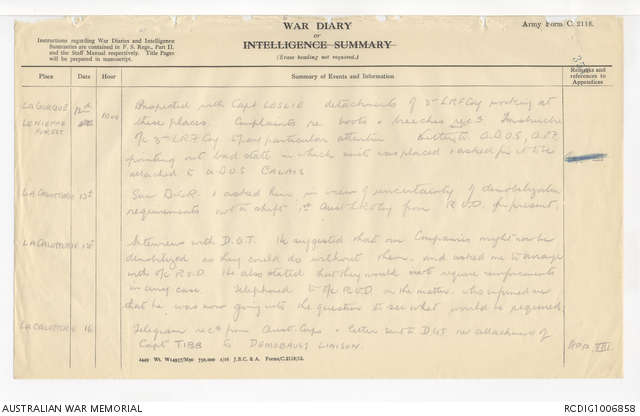 WAR DIARY
or
INTELLIGENCE SUMMARY
(Erase heading not required.)
Army Form C. 2118.
Instructions regarding War Diaries and Intelligence
Summaries are contained in F. S. Regs., Part II.
and the Staff Manual respectively. Title Pages
will be prepared in manuscript.
Place
Date
Hour
Summary of Events and Information
Remarks and
references to
Appendices
12th
1000
Inspected with Capt LESLIE detachments of 3rd LRF Coy working at
FOREST
these places. Complaints re boots & breeches
O/C 3rd LRF Coy to pay particular attention A.D.O.S,
pointing out bad state in which unit was placed & asked for it to be
attached to A.D.O.S CALAIS
LA CALOTTERIE 13th
Saw & asked him in view of uncertainty of demobilization
requirements not to shift 1st Aust from R.O.D. for present.
LA CALOTTERIE
Interview with D.G.T. He suggested that our Companies might now be
demobilized as they could do without them and asked me to arrange
with O/C R.O.D. He also stated that they would not require reinforcements
in any case. Telephoned to O/C R.O.D. on the matter, who informed me
that he was now going into the question to see what would be required.
LA CALOTTERIE 16
Telegram recd from Aust Corps & letter sent to D.G.T. re attachment of
Capt TIBB to DEMOBAUS LIAISON.
APP VIII
2449 Wt. W14957/M90 750,000 1/16 J.B.C. & A. Forms/C.2118/12.
AUSTRALIAN WAR MEMORIAL
RCDIG1006858